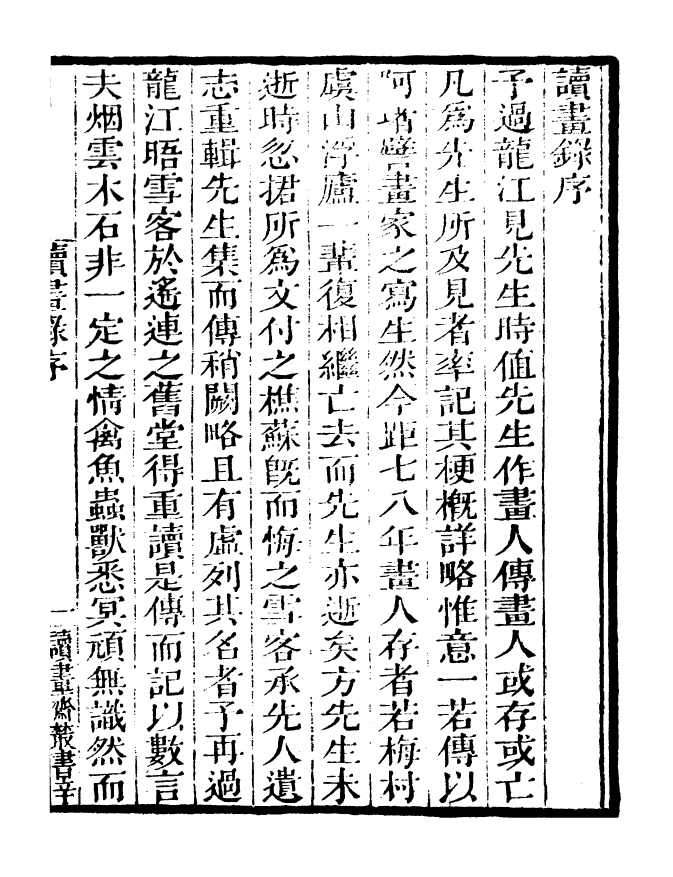 讀畫錄序
予過龍江見先生時值先生作畫人傳畫人或存或亡
凡為先生所及見者率記其梗槪詳略惟意一若傳以
阿堵譬畫家之寫生然今距七八年畫人存者若梅村
虞山浮廬一輩復相繼亡去而先生亦逝矣方先生未
逝時忽捃所為文付之樵蘇旣而悔之雪客承先人遺
志重輯先生集而傳稍闕略且有虛列其名者予再過
龍江晤雪客於遙連之舊堂得重讀是傳而記以數言
夫烟雲木石非一定之情禽魚蟲獸悉冥頑無識然而
讀畫錄序
一
讀畫齋叢書辛